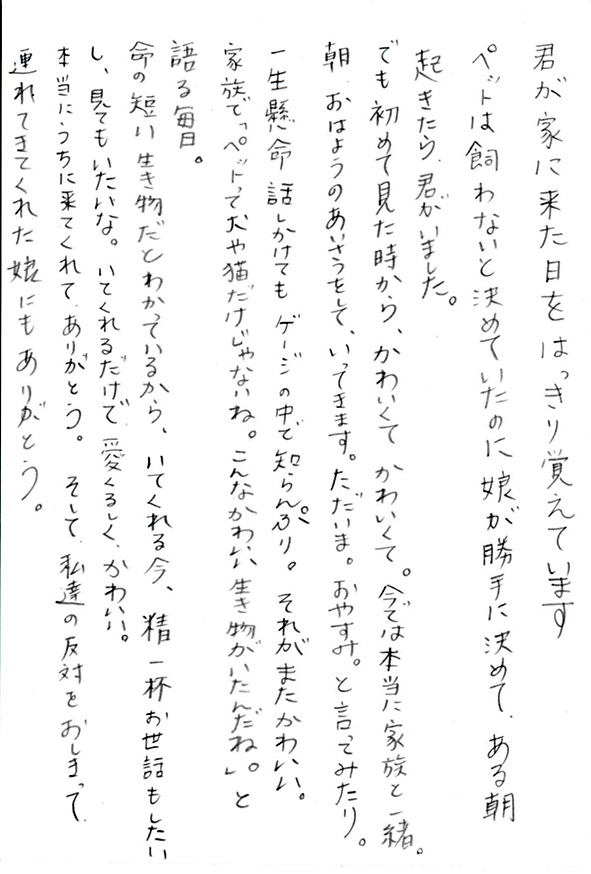 君が家に来た日をはっきり覚えています
ペットは飼わないと決めていたのに娘が勝手に決めて、ある朝
起きたら、君がいました。
でも初めて見た時から、かわいくてかわいくて。今では本当に家族と一緒。
朝、おはようのあいさつをして、いってきます。ただいま。おやすみ。と言ってみたり。
一生懸命話しかけてもゲージの中で知らんぷり。それがまたかわいい。
家族で「ペットって犬や猫だけじゃないね。こんなかわいい生き物がいたんだね。」と
語る毎日。
命の短い生き物だとわかっているから、いてくれる今、精一杯お世話もしたい
し、見てもいたいな。いてくれるだけで、愛くるしく、かわいい。
本当にうちに来てくれて、ありがとう。そして、私達の反対をおしきって、
連れてきてくれた娘にもありがとう。